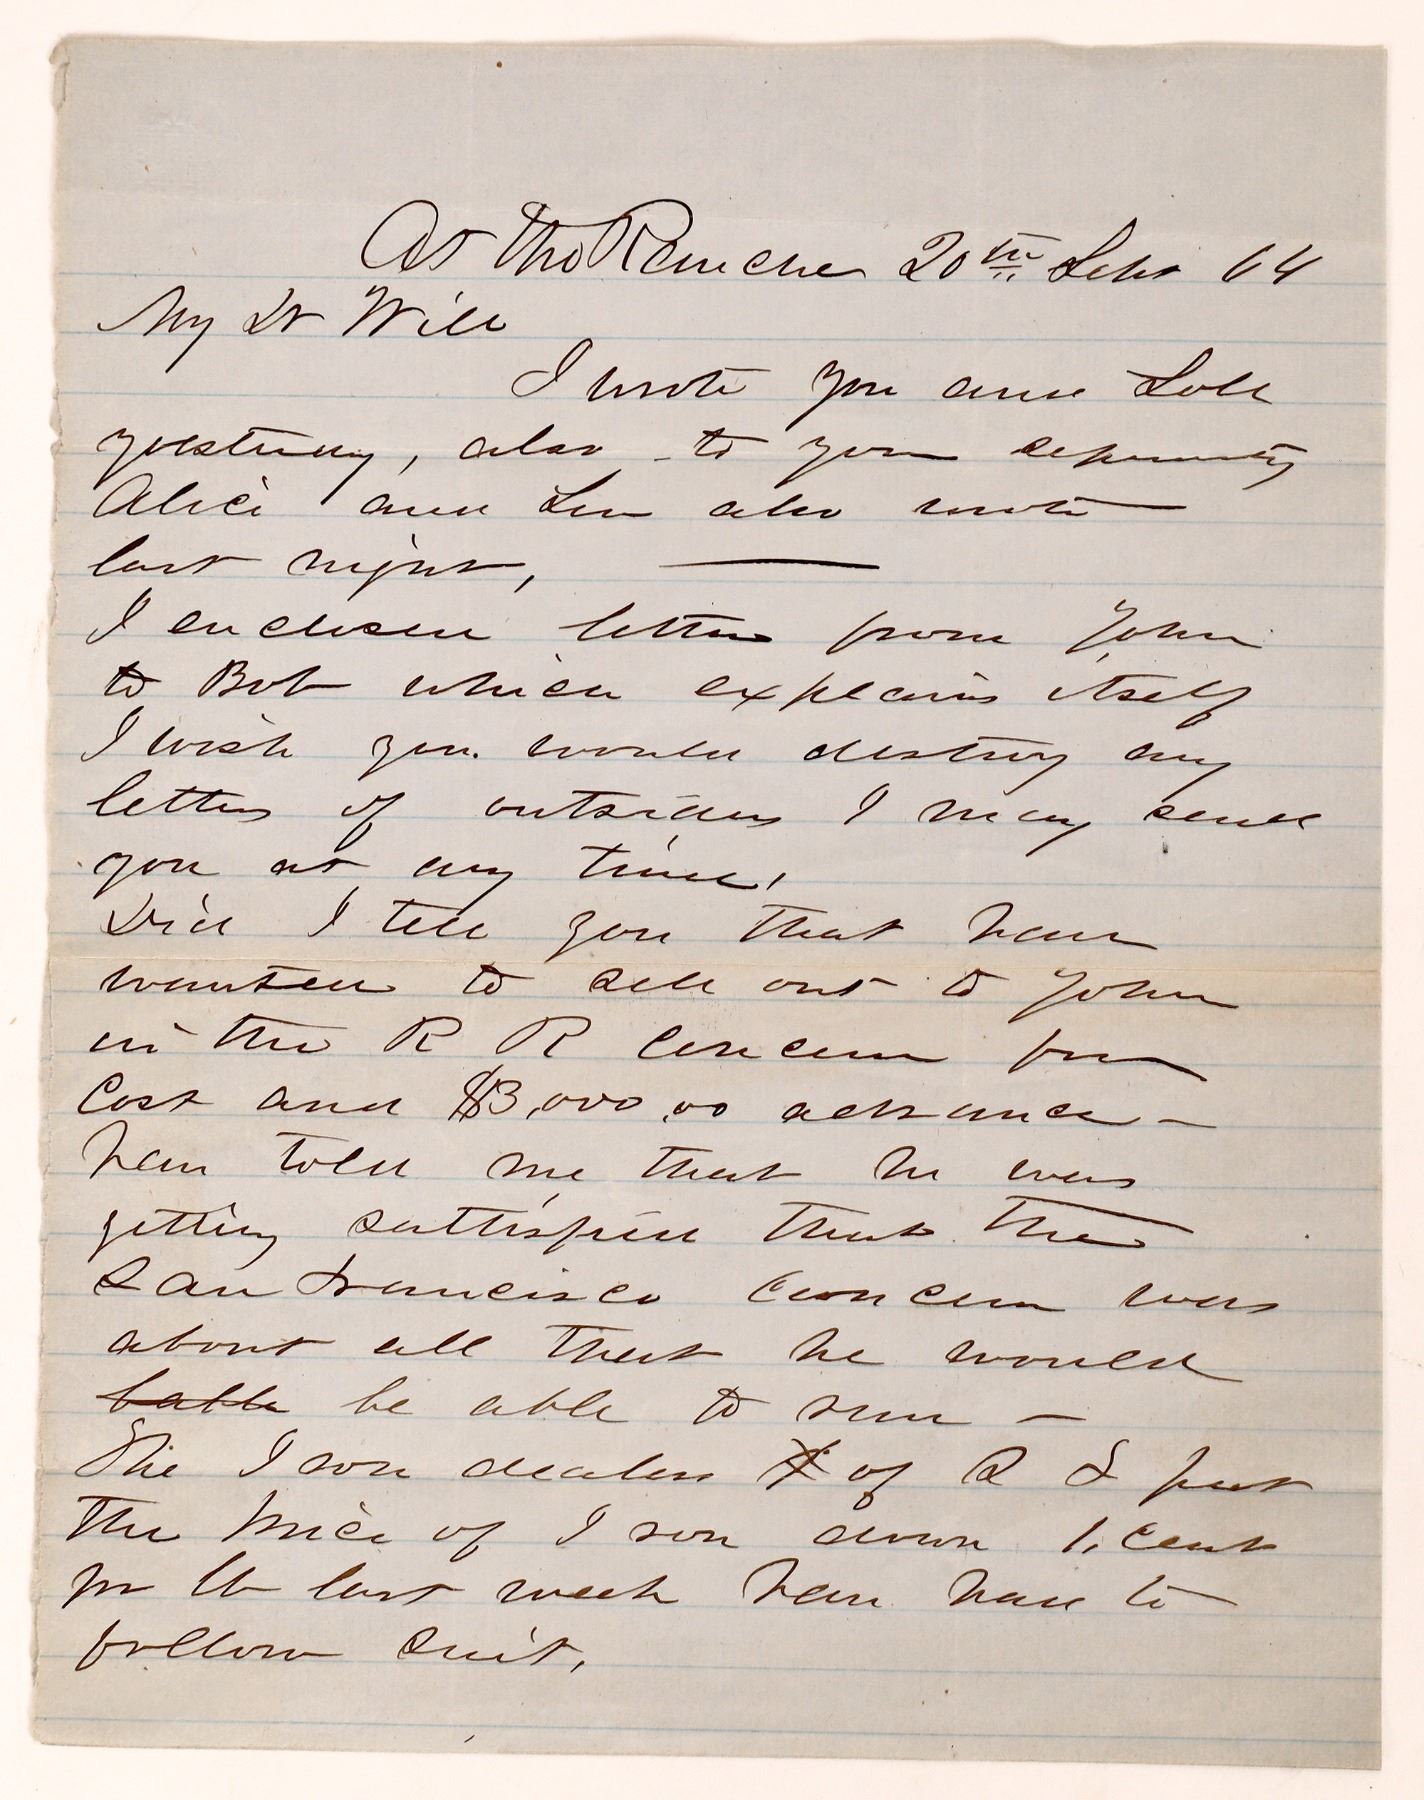 At the Ranche 20th Sept 64
My Dr Will
I wrote you and Loll
yesterday, also to you separately
Alice and Lou also wrote
last night,
I enclosed letter from John
to Bob which explains itself
I wish you would destroy any
letters of outsiders I may send
you at any time,
Did I tell you that
wanted to sell out to John
in the R R concern for
Cost and $3,000.00 advance -
told me that he was
getting sattisfied that the
San Francisco concern was
about all that he would
be able to run -
The Iron dealers of S F put
the price of Iron down 1, cent
pr lb last week had to
follow suit,